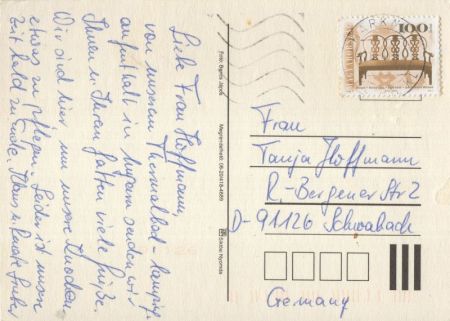 Liebe Frau Hoffmann,
von unserem Thermalbad
aufenthalt in Ungarn senden wir
Ihnen u. Ihrem Gatten viele Grüße.
Wir sind hier um unsere Knochen
etwas zu pflegen. Leider ist unsere
Zeit bald zu Ende.
Foto: Bartis János
Megrendelhető: 06-209418-4669
Siklósi Nyomda
100
Frau
Tanja Hoffmann
R.-Bergener Str 2
D-91126 Schwabach
Germany